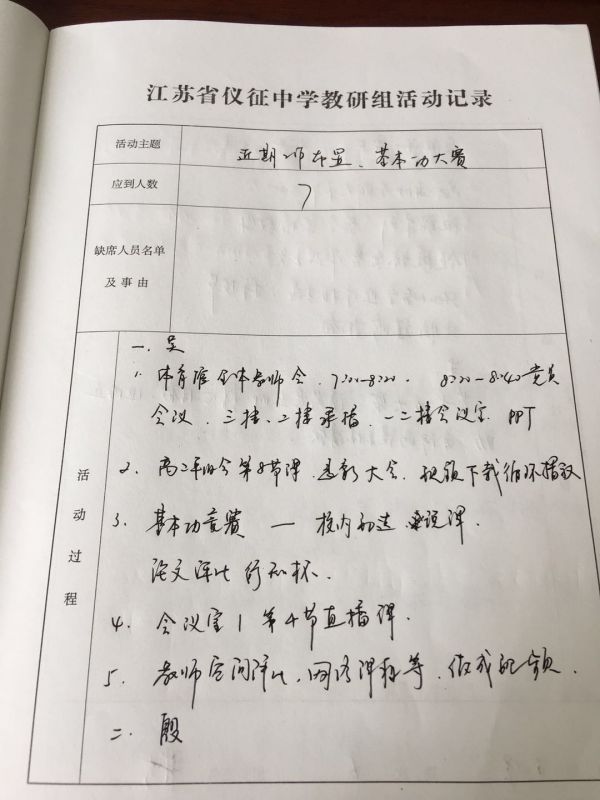 江苏省仪征中学教研组活动记录
活动主题
近期工作布置、基本功大赛
应到人数
7
缺席人员名单
及事由
活动过程
一. 吴
1. 体育馆全体教师会. 7:20-8:20. 8:20-8:40党员
会议. 三楼、二楼录播. 一二楼会议室. PPT
2. 高二年级会第8节课. 大会. 视频下载循环播放
3. 基本功竞赛 — 校内初选 说课.
论文评比 行知杯.
4. 会议室1 第4节直播课.
5. 教师空间评比、网络课程等. 做成视频.
二. 殷